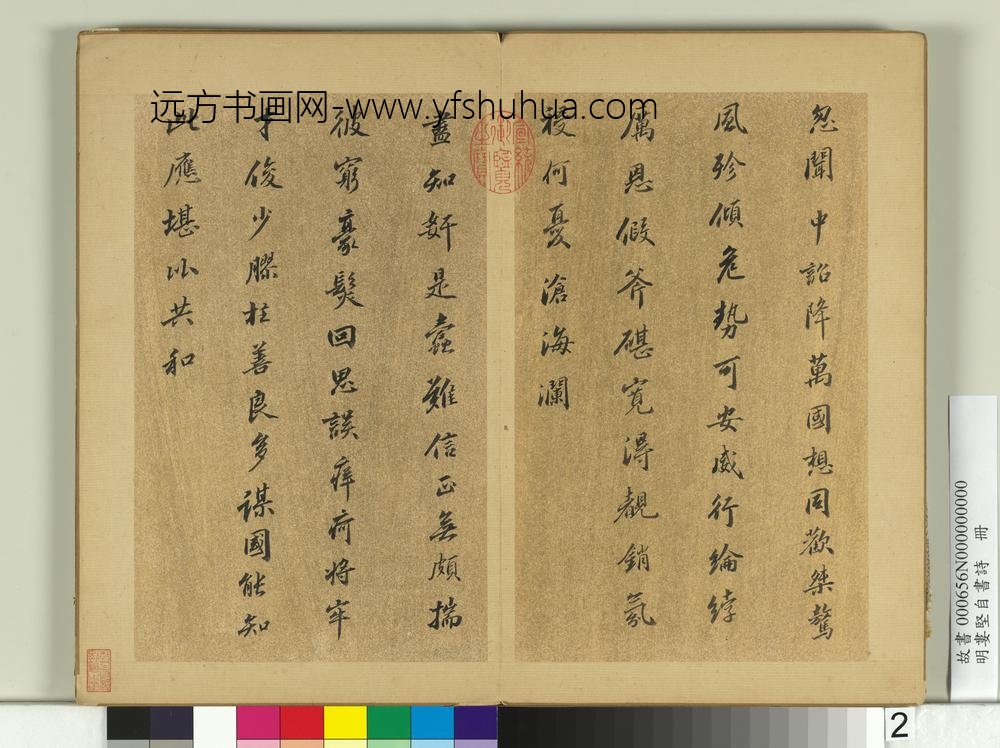 远方书画网-www.yfshuhua.com
忽聞中詔降萬國想同歡桀驁
風殄傾危勢可安威行綸綍
厲恩假斧碪寬淂覩銷氛
祲何憂滄海瀾
宣統御覽之寶
盡知奸是蠹難信正無頗揣
彼窮豪髮回思誤痒疴將牢
才俊少膠柱善良多謀國能知
此應堪以共和
故書 000656N000000000
明婁堅自書詩 冊
2